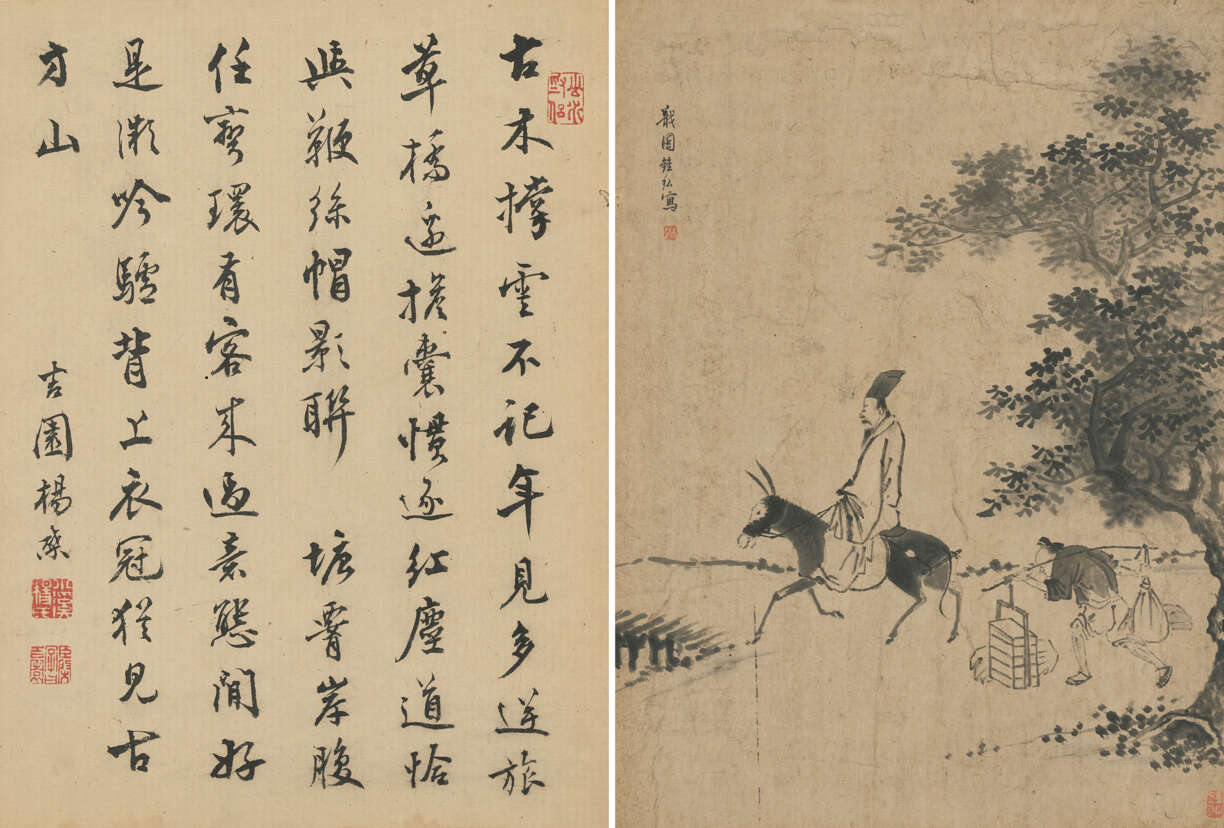 古木撑雲不記年見多逆旅
草橋邊擔囊慣逐紅塵道恰
與鞭絲帽影聯 塘霤岸腹
任穹環有客來過意態閒好
是微吟驢背上衣冠猶見古
方山
吉園楊棨
戲園鍾弘寫